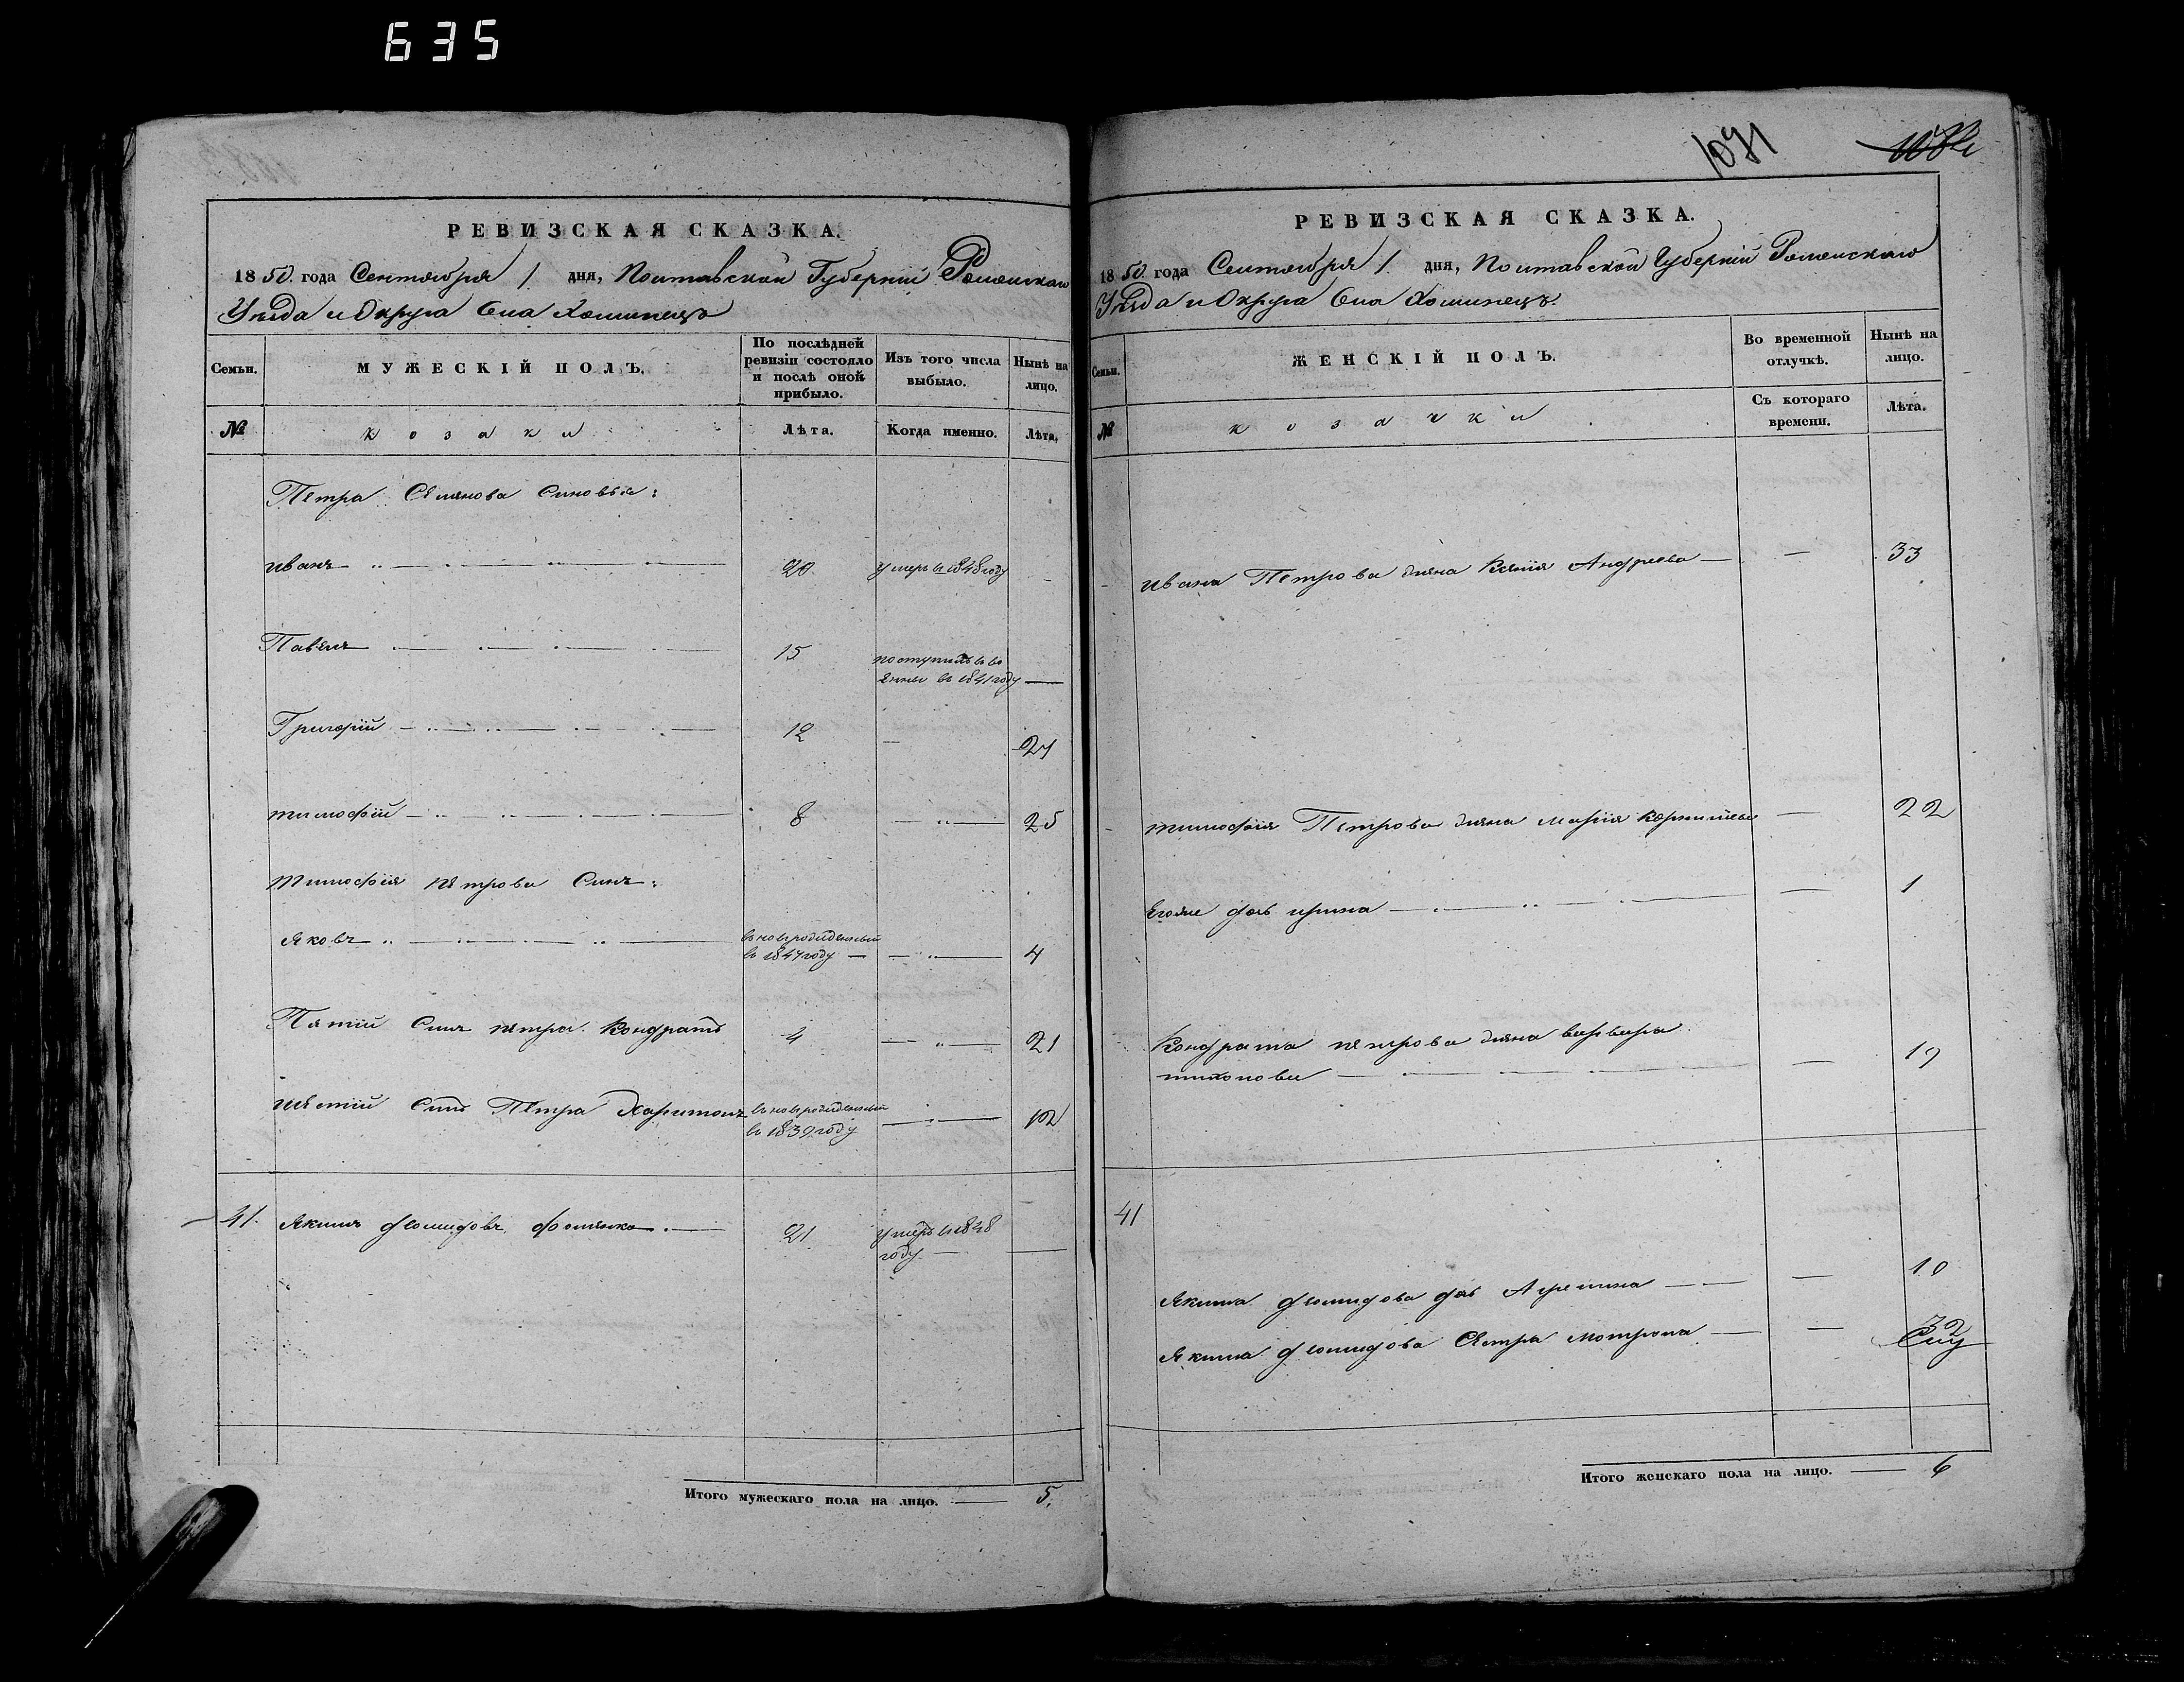 635
РЕВИЗСКАЯ СКАЗКА.
1850. года Сентября 1 дня, Полтавской Губерніи Роменскаго
Уѣзда и Округа Села Хоминецъ
Семьи.
МУЖЕСКІЙ ПОЛЪ.
По послѣдней ревизіи состояло и послѣ оной прибыло.
Изъ того числа выбыло.
Нынѣ на лицо.
№
козаки
Лѣта.
Когда именно.
Лѣта.
Петра Семенова Сыновья:
Иванъ 20 умеръ въ 1848 году
Павелъ 15 поступилъ въ во
енные въ 1841 году
Григорій 12 27
тимофій 8 25
Тимофія петрова Сынъ:
Яковъ вновьрожденный
въ 1847 году 4
Пятій Сынъ петра Кондратъ 4 21
шестій Сынъ Петра Харитонъ вновьрожденный
въ 1839 году 12
41. Якимъ Демидовъ Фоменко 21 умеръ въ 1848
году
Итого мужескаго пола на лицо. 5.
1071
РЕВИЗСКАЯ СКАЗКА.
1850. года Сентября 1 дня, Полтавской Губерніи Роменскаго
Уѣзда и Округа Села Хоминецъ.
Семьи.
ЖЕНСКІЙ ПОЛЪ.
Во временной отлучкѣ.
Нынѣ на лицо.
№
козачки
Съ котораго времени.
Лѣта.
Ивана Петрова жена Андреева 33
тимофія Петрова жена Марія 22
Егоже дочь ирина 1
Кондрата петрова жена варвара
тихонова 19
41
Якима Демидова дочь Агрепина 10
Якима Демидова Сестра Мотрона 32
Итого женскаго пола на лицо. 6